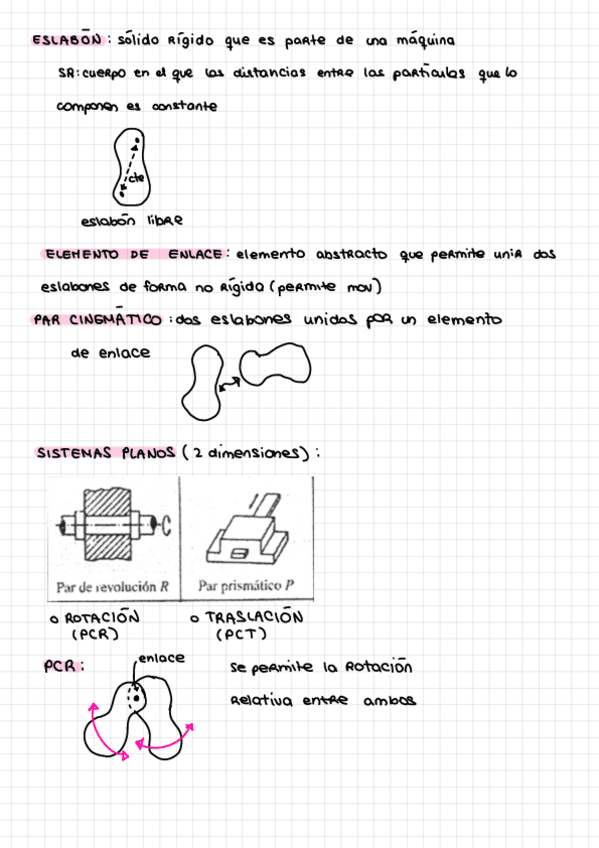 ESLABÓN: sólido rígido que es parte de una máquina
SR: cuerpo en el que las distancias entre las partículas que lo
componen es constante
cte
eslabón libre
ELEMENTO DE ENLACE: elemento abstracto que permite unir dos
eslabones de forma no rígida (permite mov)
PAR CINEMÁTICO: dos eslabones unidos por un elemento
de enlace
SISTEMAS PLANOS (2 dimensiones):
Par de revolución R
Par prismático P
o ROTACIÓN
(PCR)
o TRASLACIÓN
(PCT)
PCR:
enlace
se permite la rotación
relativa entre ambos